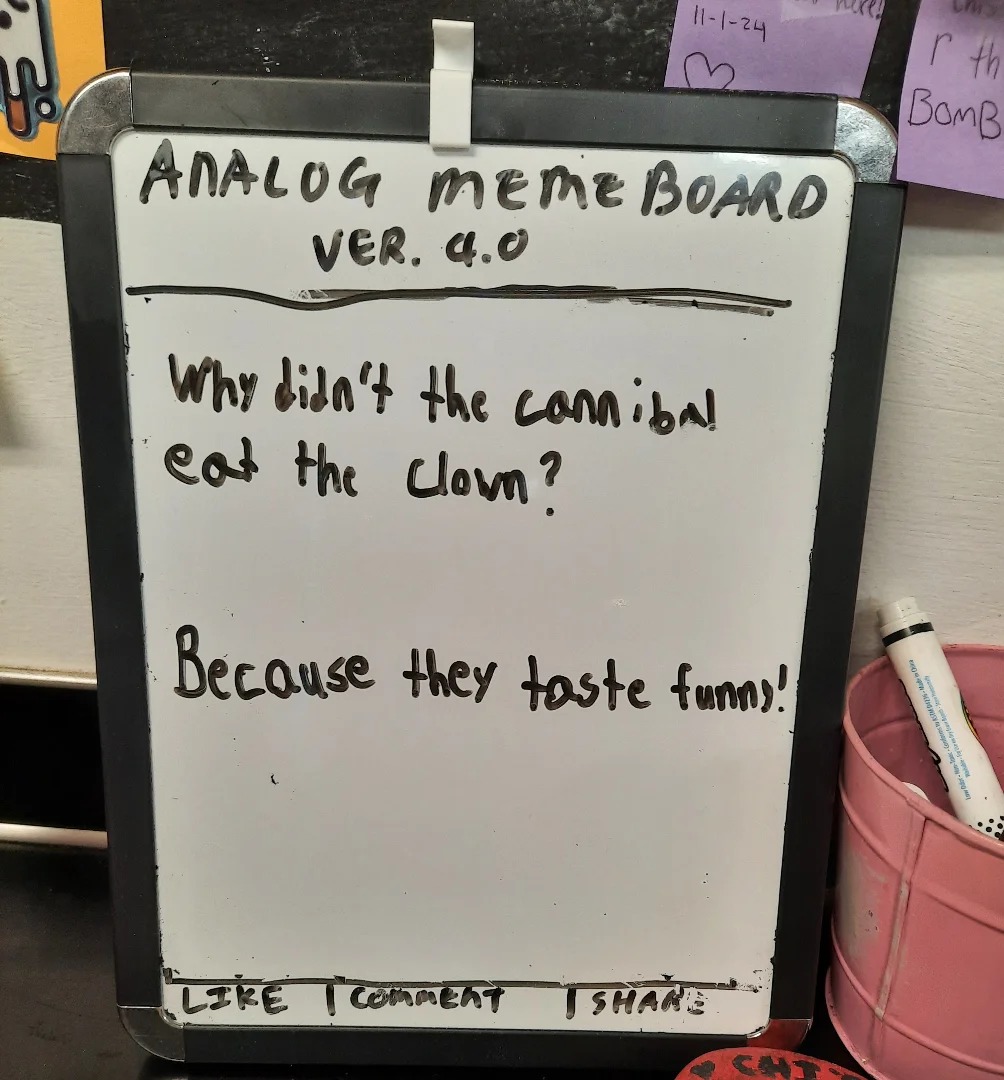 11-1-24
r th
BomB
ANALOG MEME BOARD
VER. 4.0
Why didn't the cannibal
eat the clown?
Because they taste funny!
LIKE | COMMENT | SHARE